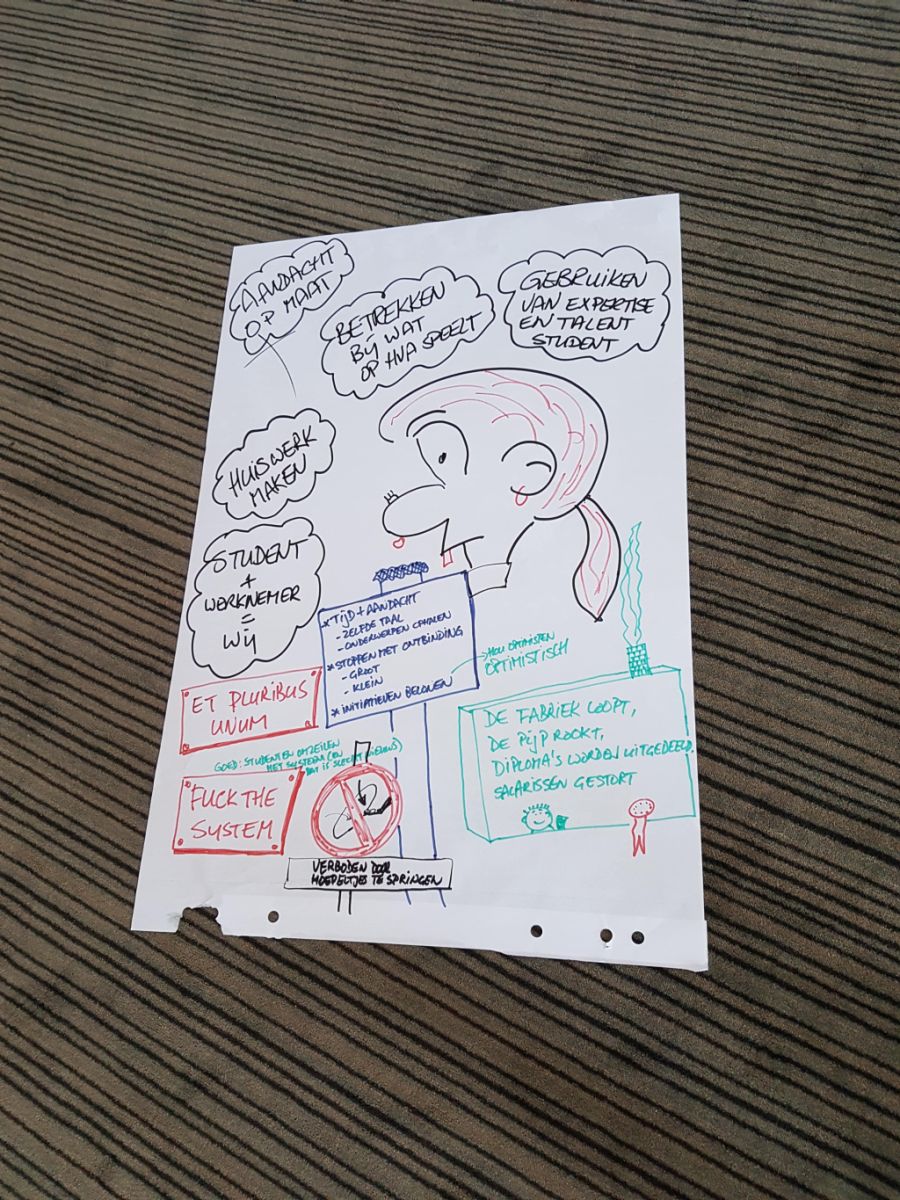 AANDACHT
OP MAAT
BETREKKEN
BIJ WAT
OP HVA SPEELT
GEBRUIKEN
VAN EXPERTISE
EN TALENT
STUDENT
HUISWERK
MAKEN
STUDENT
+
WERKNEMER
=
WIJ
* TIJD + AANDACHT
- ZELFDE TAAL
- ONDERWERPEN OPHALEN
* STOPPEN MET ONTBINDING
- GROOT
- KLEIN
* INITIATIEVEN BELONEN
HOU OPTIMISTEN
OPTIMISTISCH
ET PLURIBUS
UNUM
GOED: STUDENTEN OMZEILEN
HET SYSTEEM (EN
DAT IS SLECHT NIEUWS)
FUCK THE
SYSTEM
VERBODEN DOOR
HOEPELTJES TE SPRINGEN
DE FABRIEK LOOPT,
DE PIJP ROOKT,
DIPLOMA'S WORDEN UITGEDEELD,
SALARISSEN GESTORT